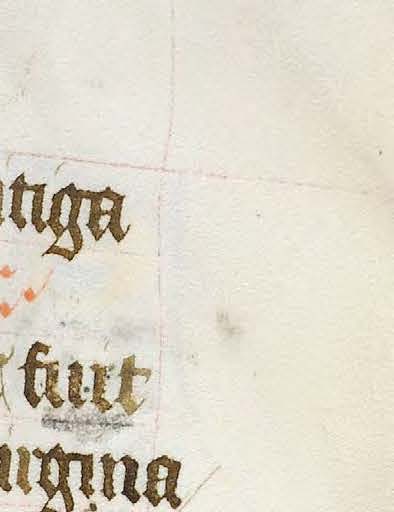 tiga
fuit
rgina